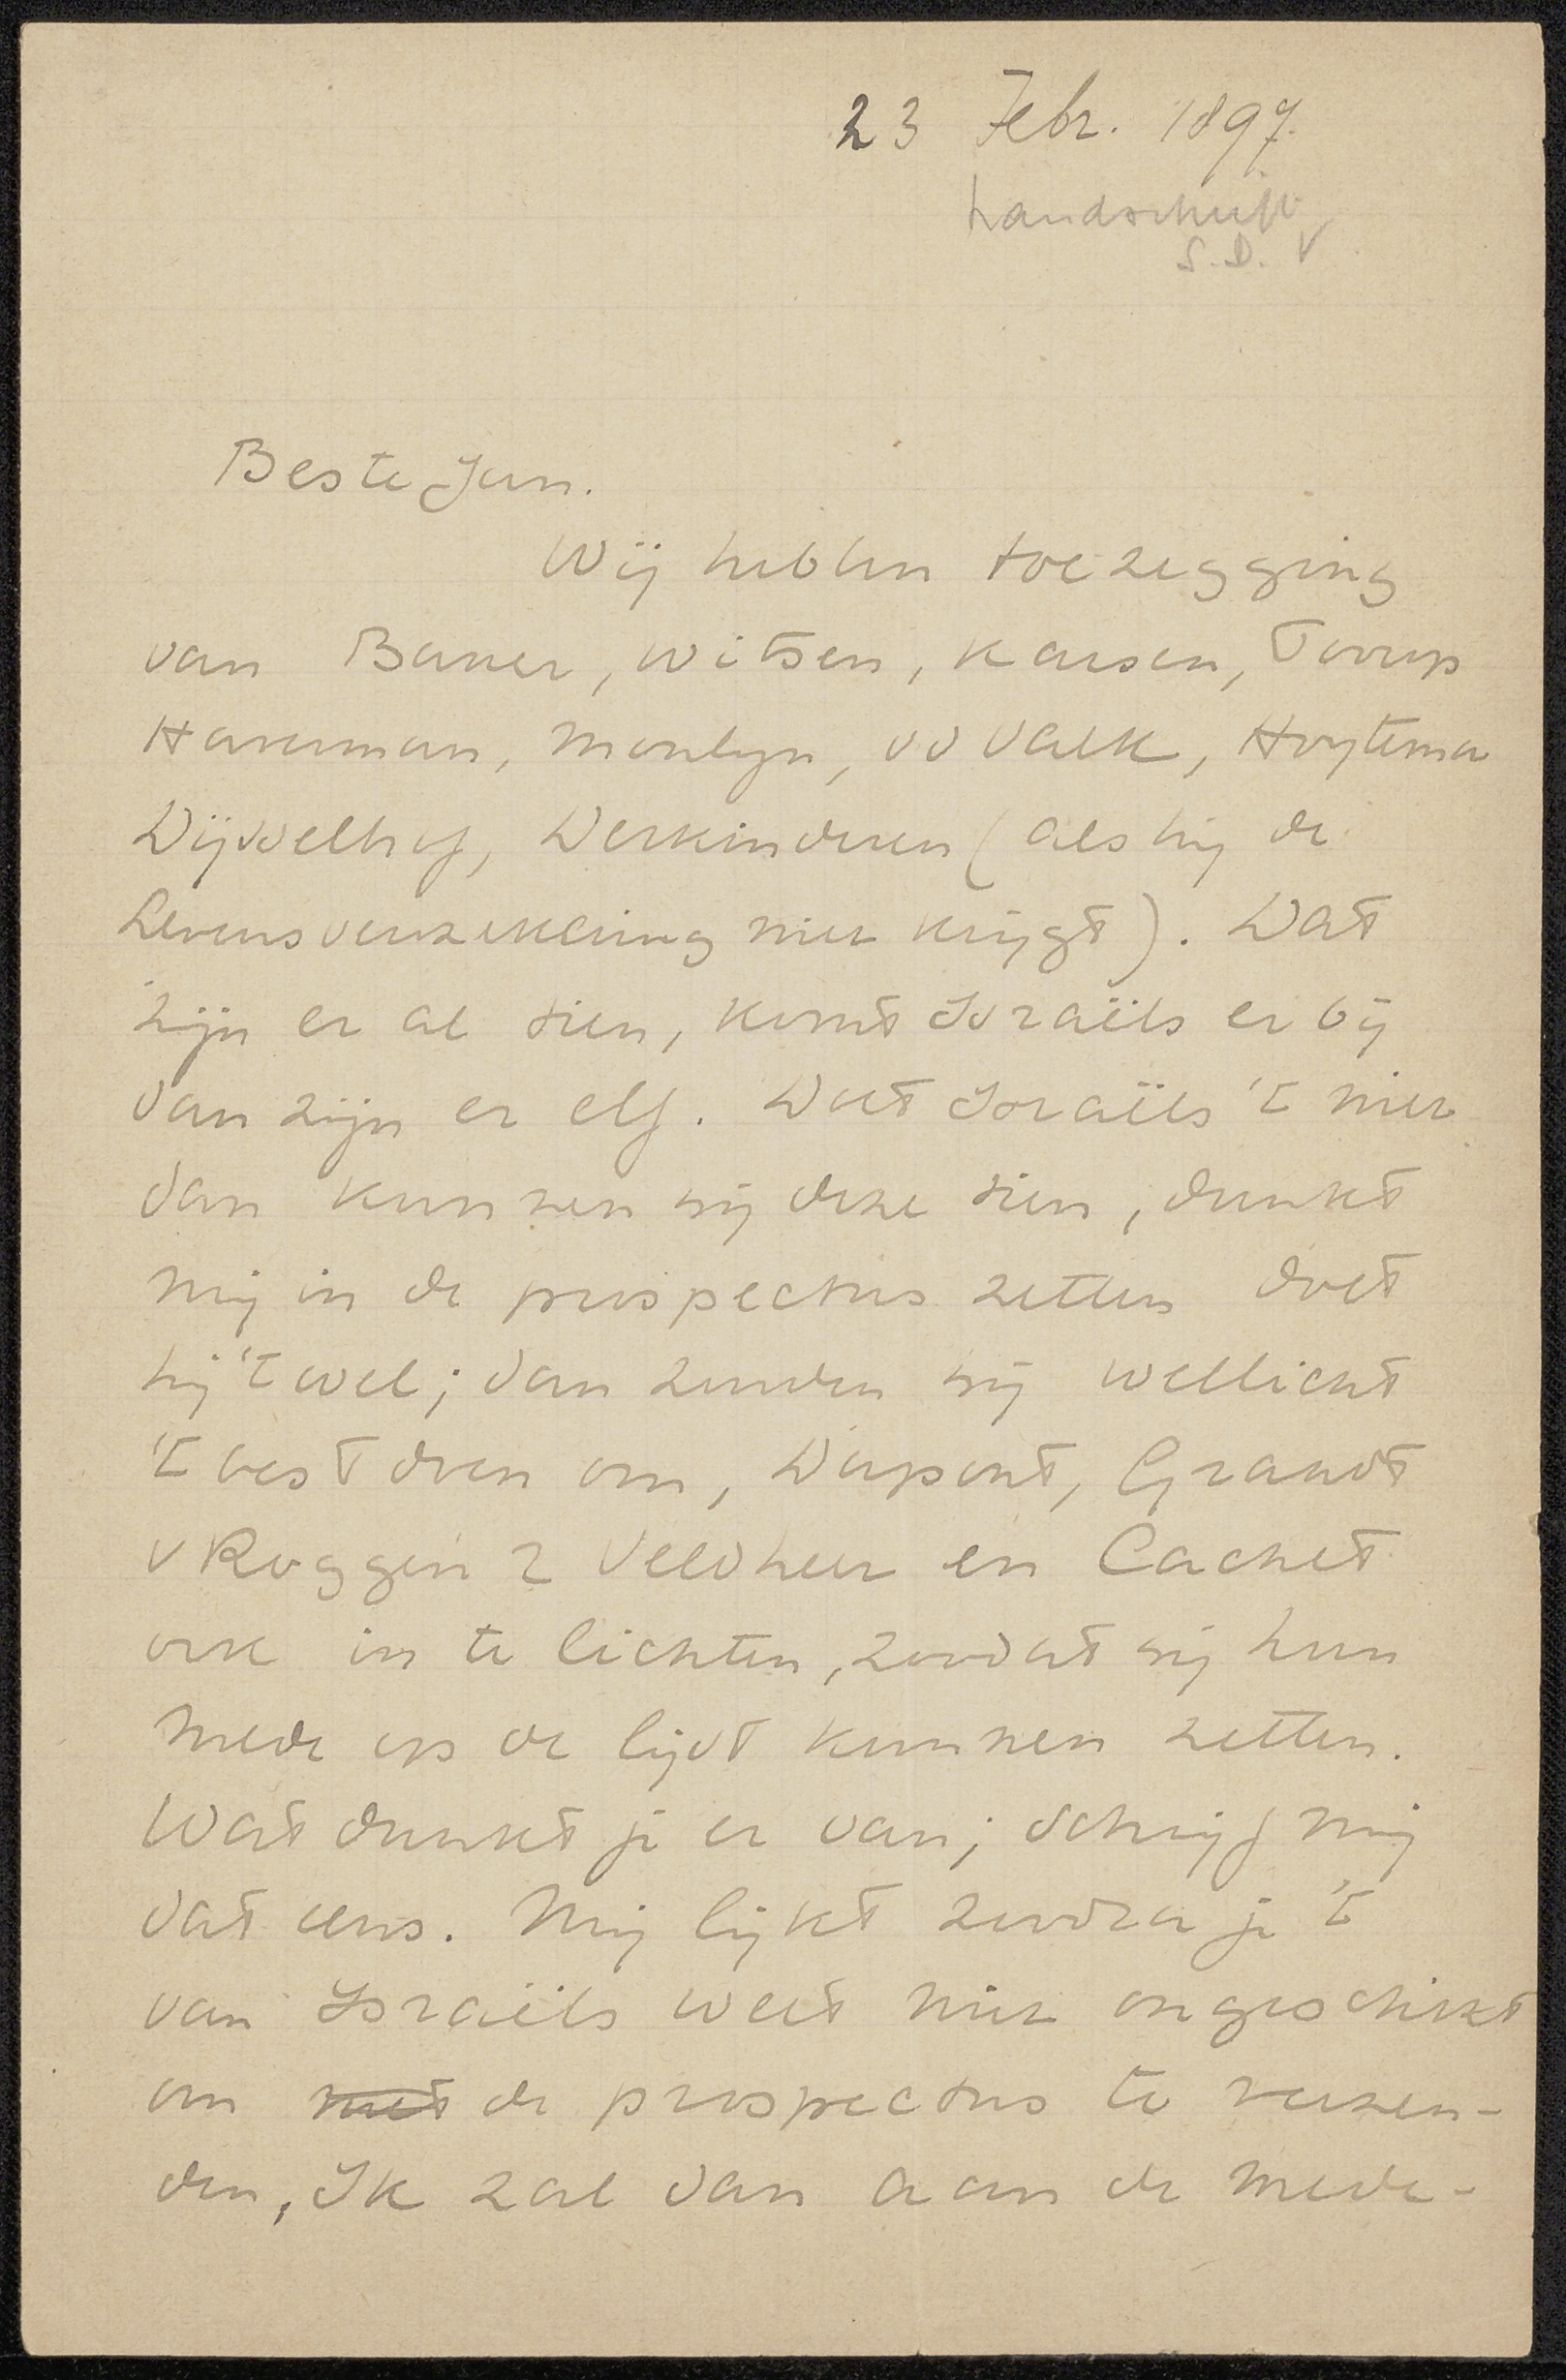 23 Febr. 1897.
handschrift
S.D. V
Beste Jan.
Wij hebben toezegging
van Bauer, Witsen, Karsen, Toorop
Haverman, Moulijn, vd Valk, Hoytema
Dijsselhof, Derkinderen (als hij de
Levensverzekering niet krijgt). Dat
zijn er al tien, komt Israëls er bij
dan zijn er elf. Doet Israëls 't niet
dan kunnen wij deze tien, dunkt
mij in de prospectus zetten doet
hij 't wel; dan zouden wij wellicht
't best doen om, Dupont, Graadt
v Roggen, Veldheer en Cachet
ook in te lichten, zoodat wij hun
mede op de lijst kunnen zetten.
Wat dunkt je er van; schrijf mij
dat eens. Mij lijkt zoodra je 't
van Israëls weet niet ongeschikt
om met de prospectus te verzen-
den, Ik zal dan aan de mede-